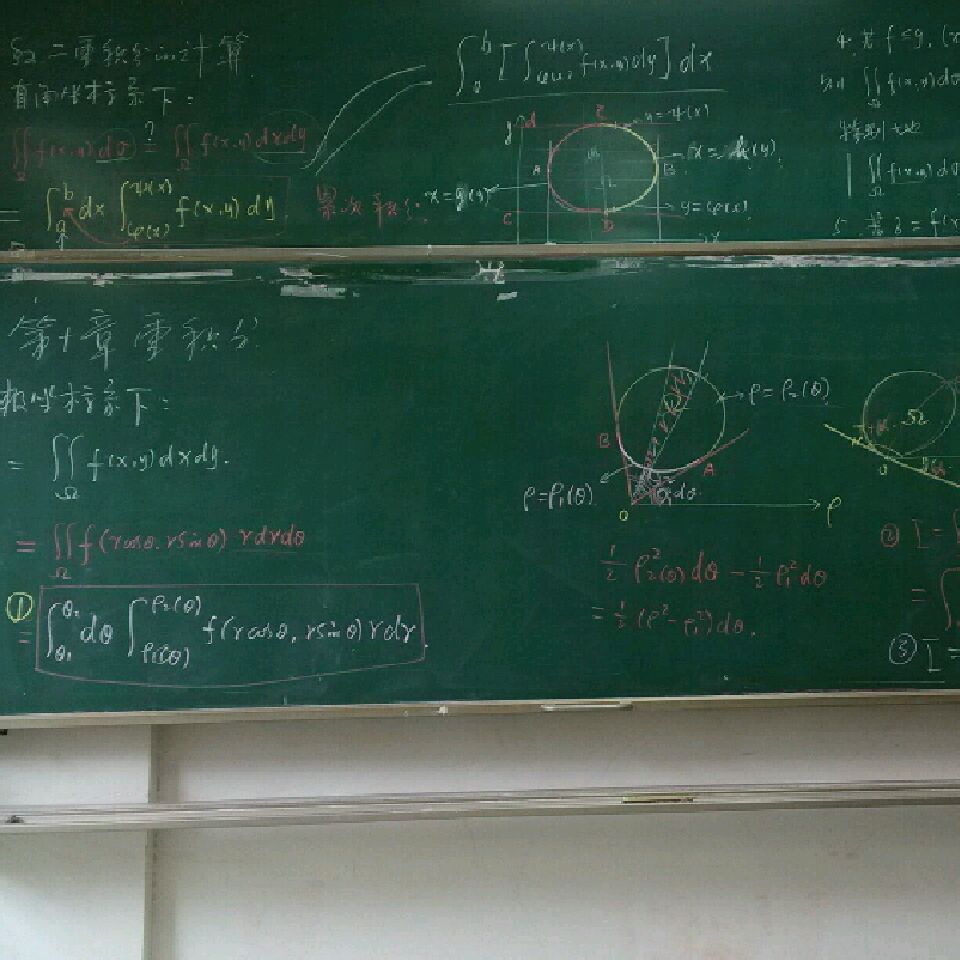 §2 二重积分的计算
直角坐标系下:
∬_Ω f(x,y) dσ ≟ ∬_Ω f(x,y) dxdy
= ∫_a^b dx ∫_{φ(x)}^{ψ(x)} f(x,y) dy
累次积分:
∫_a^b [∫_{φ(x)}^{ψ(x)} f(x,y) dy] dx
y d E y=ψ(x)
A B
x=g(y)
C D y=φ(x)
x
4. 若 f≤g, (x
则 ∬_Ω f(x,y) dσ
特别地
∬_Ω f(x,y) dσ
5. 若 z = f(x
第十章 重积分
极坐标系下:
= ∬_Ω f(x,y) dxdy.
= ∬_Ω f(rcosθ, rsinθ) rdrdθ
① = ∫_{θ₁}^{θ₂} dθ ∫_{ρ₁(θ)}^{ρ₂(θ)} f(rcosθ, rsinθ) rdr
ρ=ρ₂(θ)
B A
ρ=ρ₁(θ) dθ
O ρ
1/2 ρ₂²(θ) dθ − 1/2 ρ₁² dθ
= 1/2 (ρ² − ρ₁²) dθ.
Ω
② I =
=
③ I =